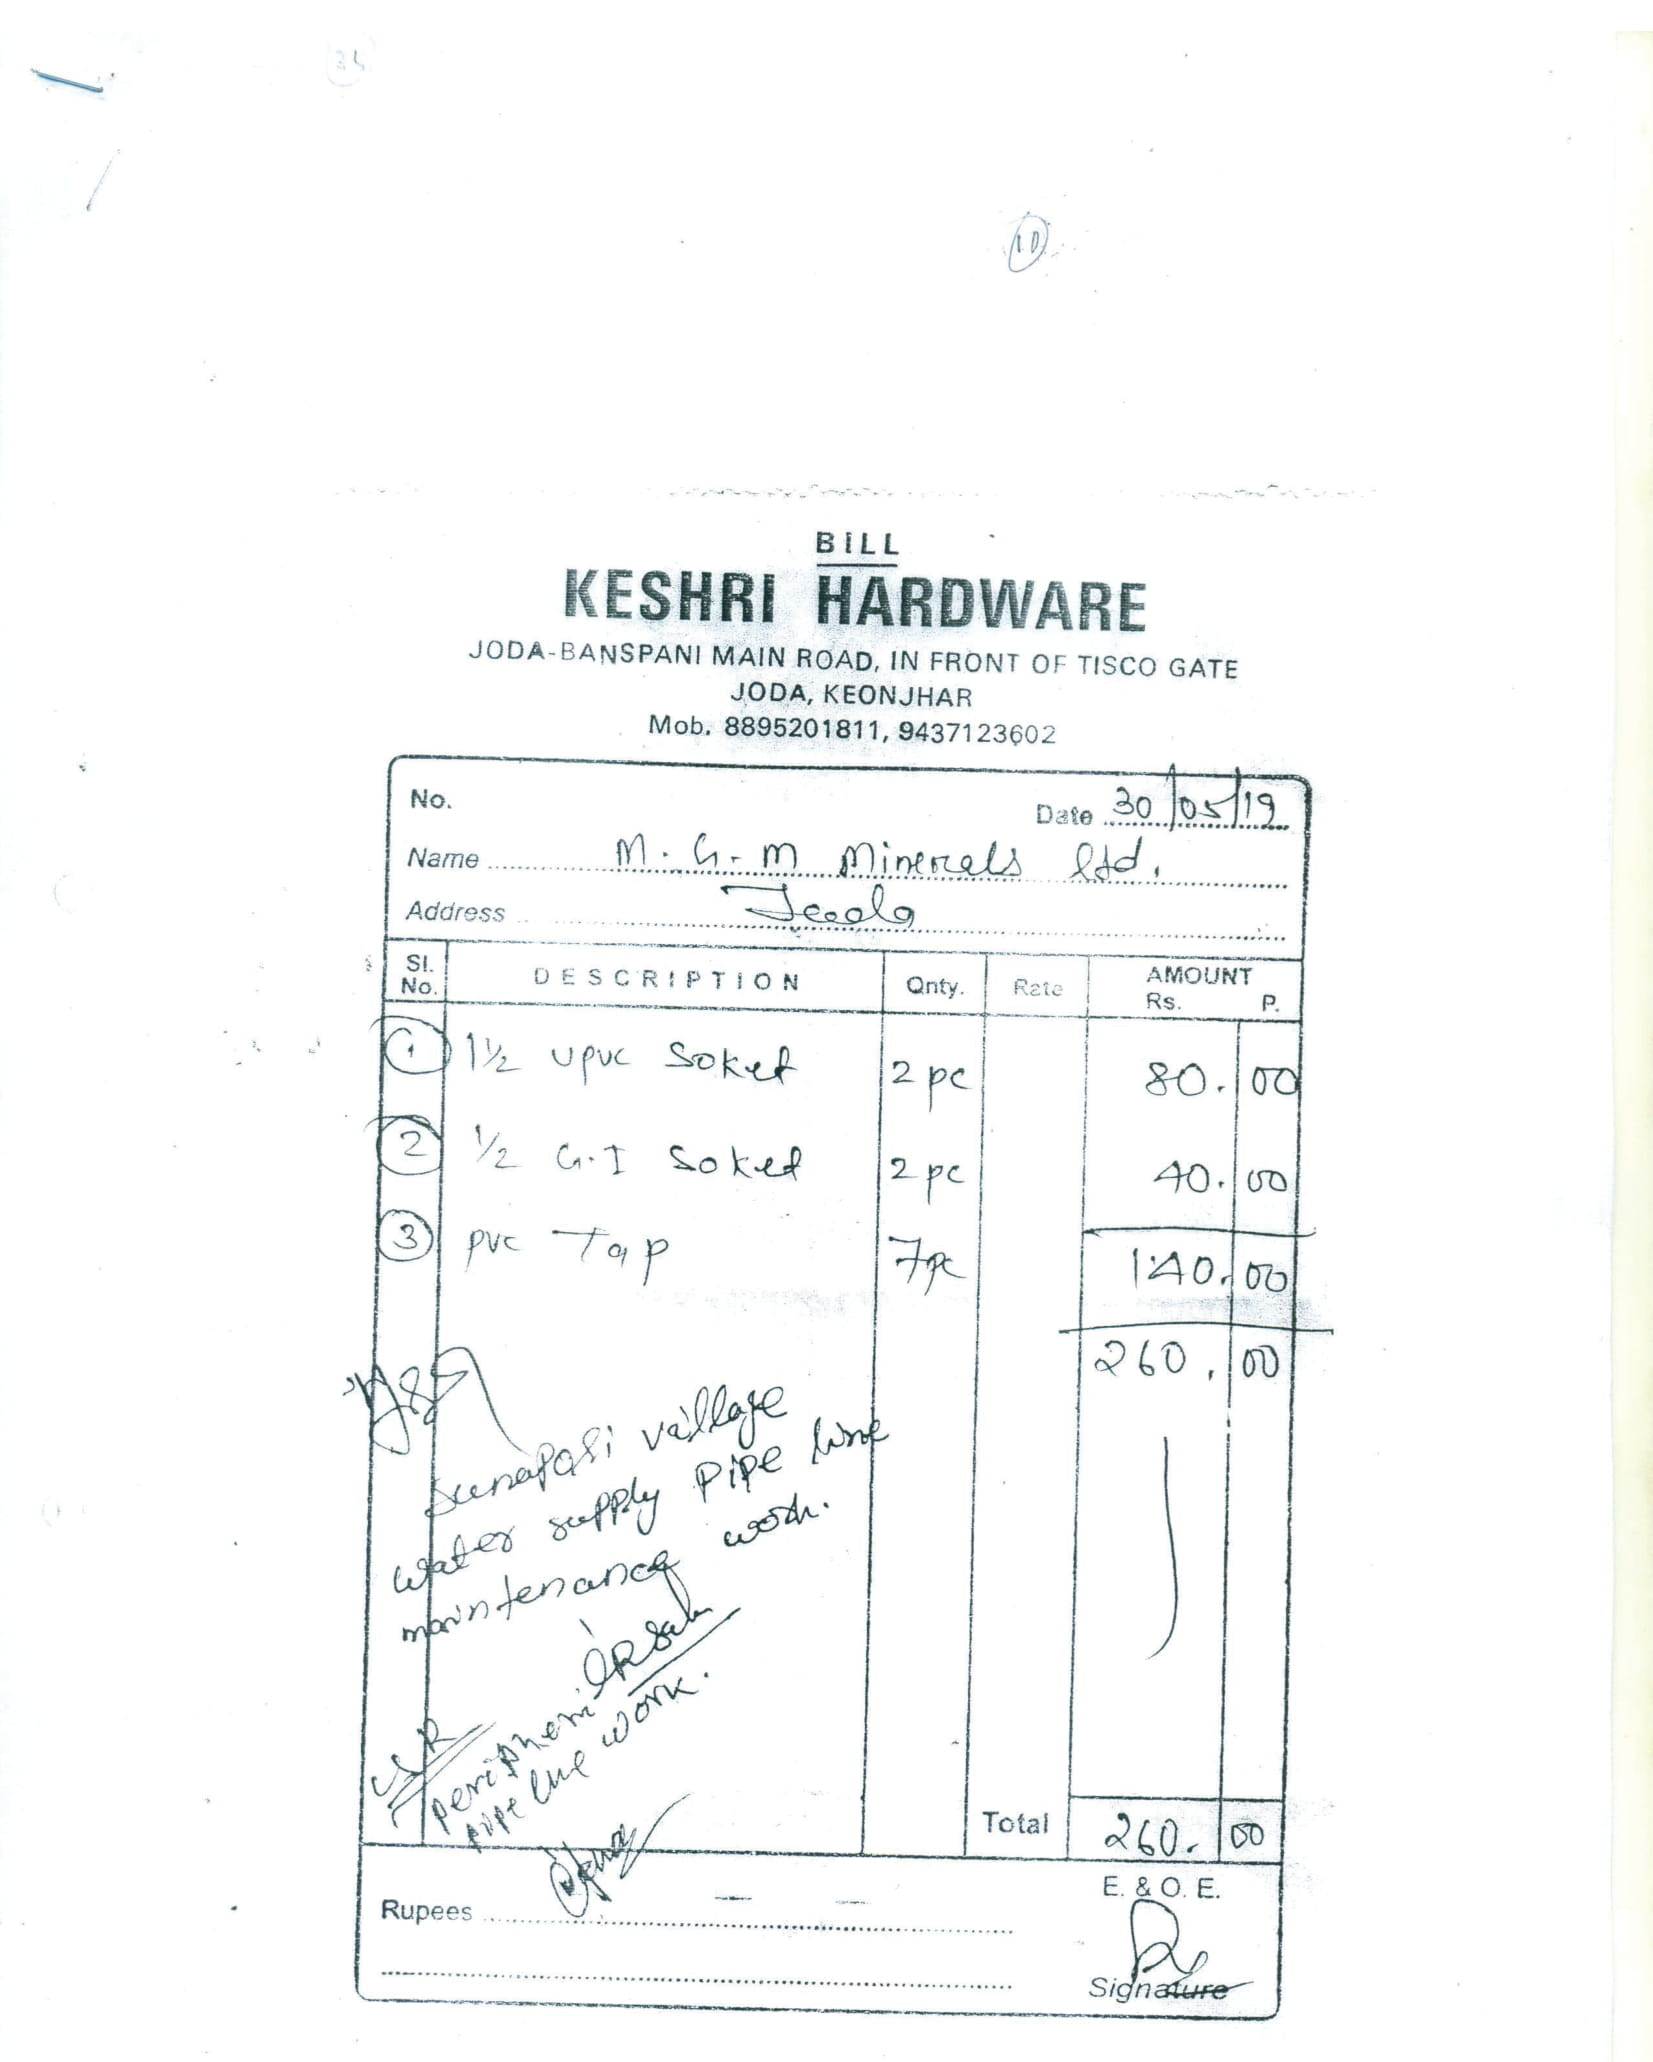 10
BILL
KESHRI HARDWARE
JODA-BANSPANI MAIN ROAD, IN FRONT OF TISCO GATE
JODA, KEONJHAR
Mob. 8895201811, 9437123602
No.
Date 30/05/19
Name M.G.M Minerals Ltd.
Address Joda
Sl. No. DESCRIPTION Qnty. Rate AMOUNT Rs. P.
1 1½ upvc Soket 2 pc 80. 00
2 ½ G.I Soket 2 pc 40. 00
3 pvc Tap 7 pc 140. 00
260. 00
village
water supply pipe line
maintenance work.
peripheri
pipe line work.
Total 260. 00
E. & O. E.
Rupees
Signature